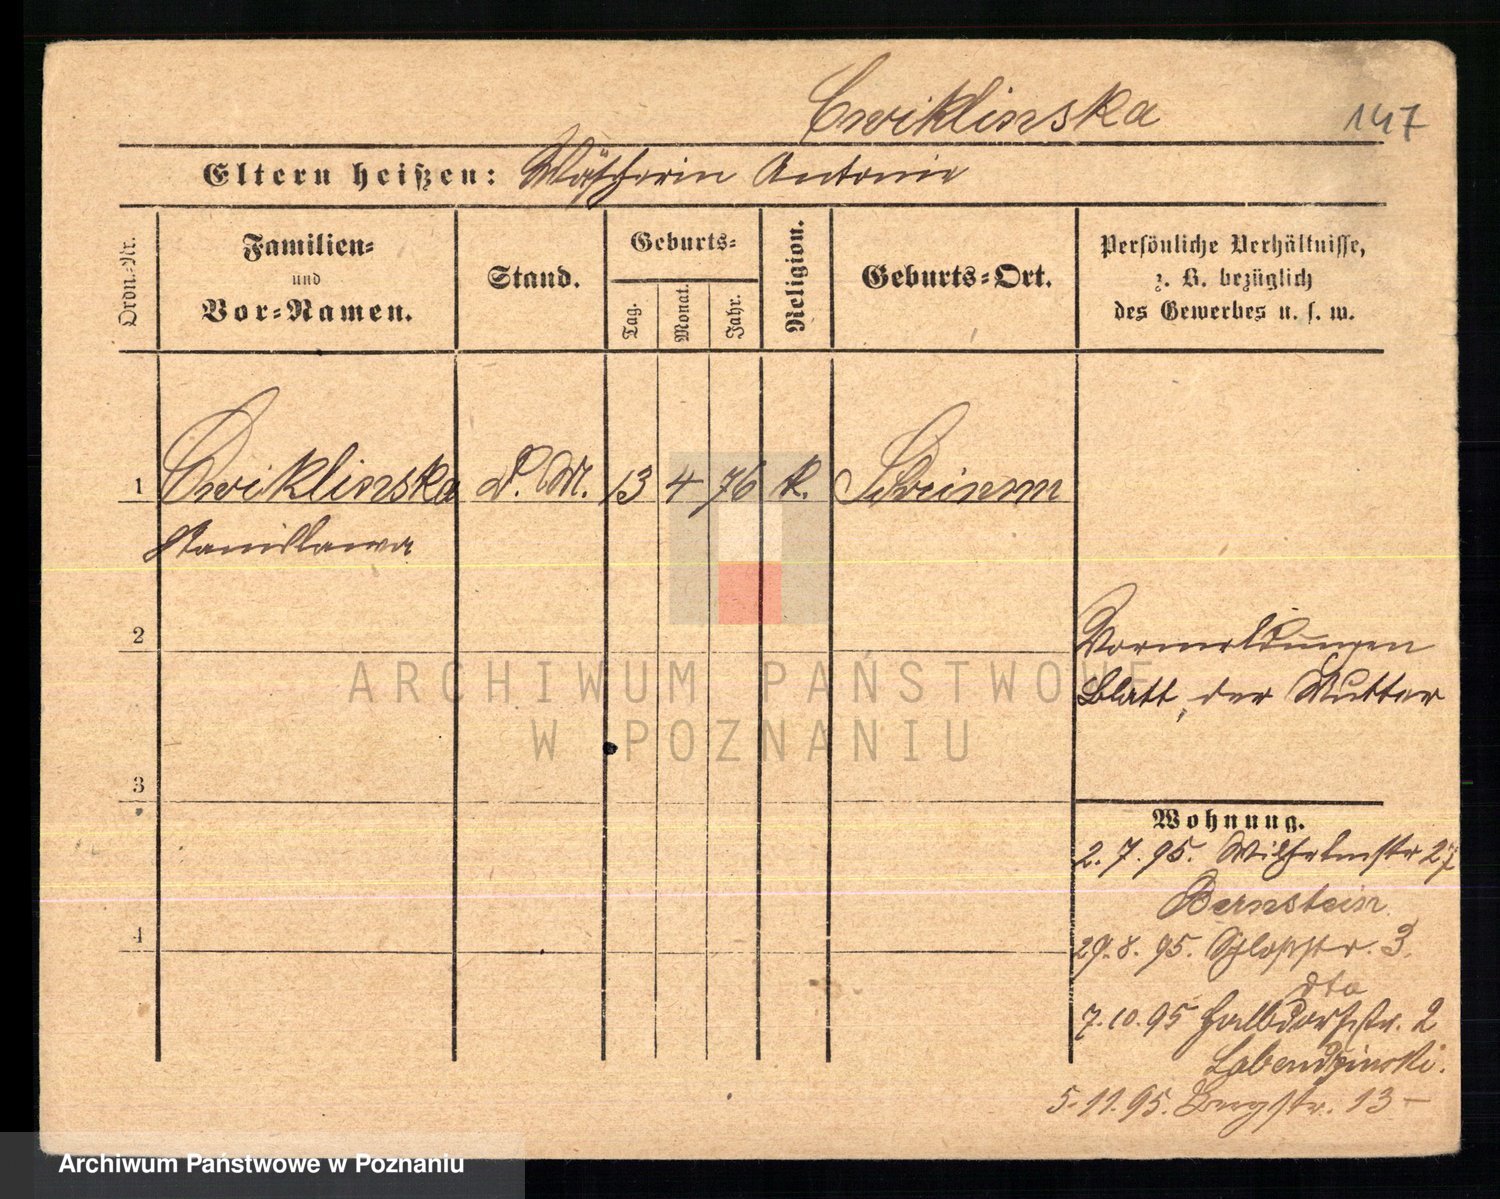 Cwiklinska
147
Eltern heißen: Wäscherin Antonie
Ordn.-Nr.
Familien-
und
Vor-Namen.
Stand.
Geburts-
Tag.
Monat.
Jahr.
Religion.
Geburts-Ort.
Persönliche Verhältnisse,
z. B. bezüglich
des Gewerbes u. s. w.
1 Cwiklinska D. M. 13 4 76 k. Schrimm
Stanislawa
2
Vormeldungen
Blatt, der Mutter
3
Wohnung.
2. 7. 95. Wilhelmstr 27
Bernstein
4
29. 8. 95. Schloßstr. 3.
dto
7. 10. 95 Halbdorfstr. 2
Labendzinski.
5. 11. 95. Bergstr. 13 –
ARCHIWUM PAŃSTWOWE
W POZNANIU
Archiwum Państwowe w Poznaniu